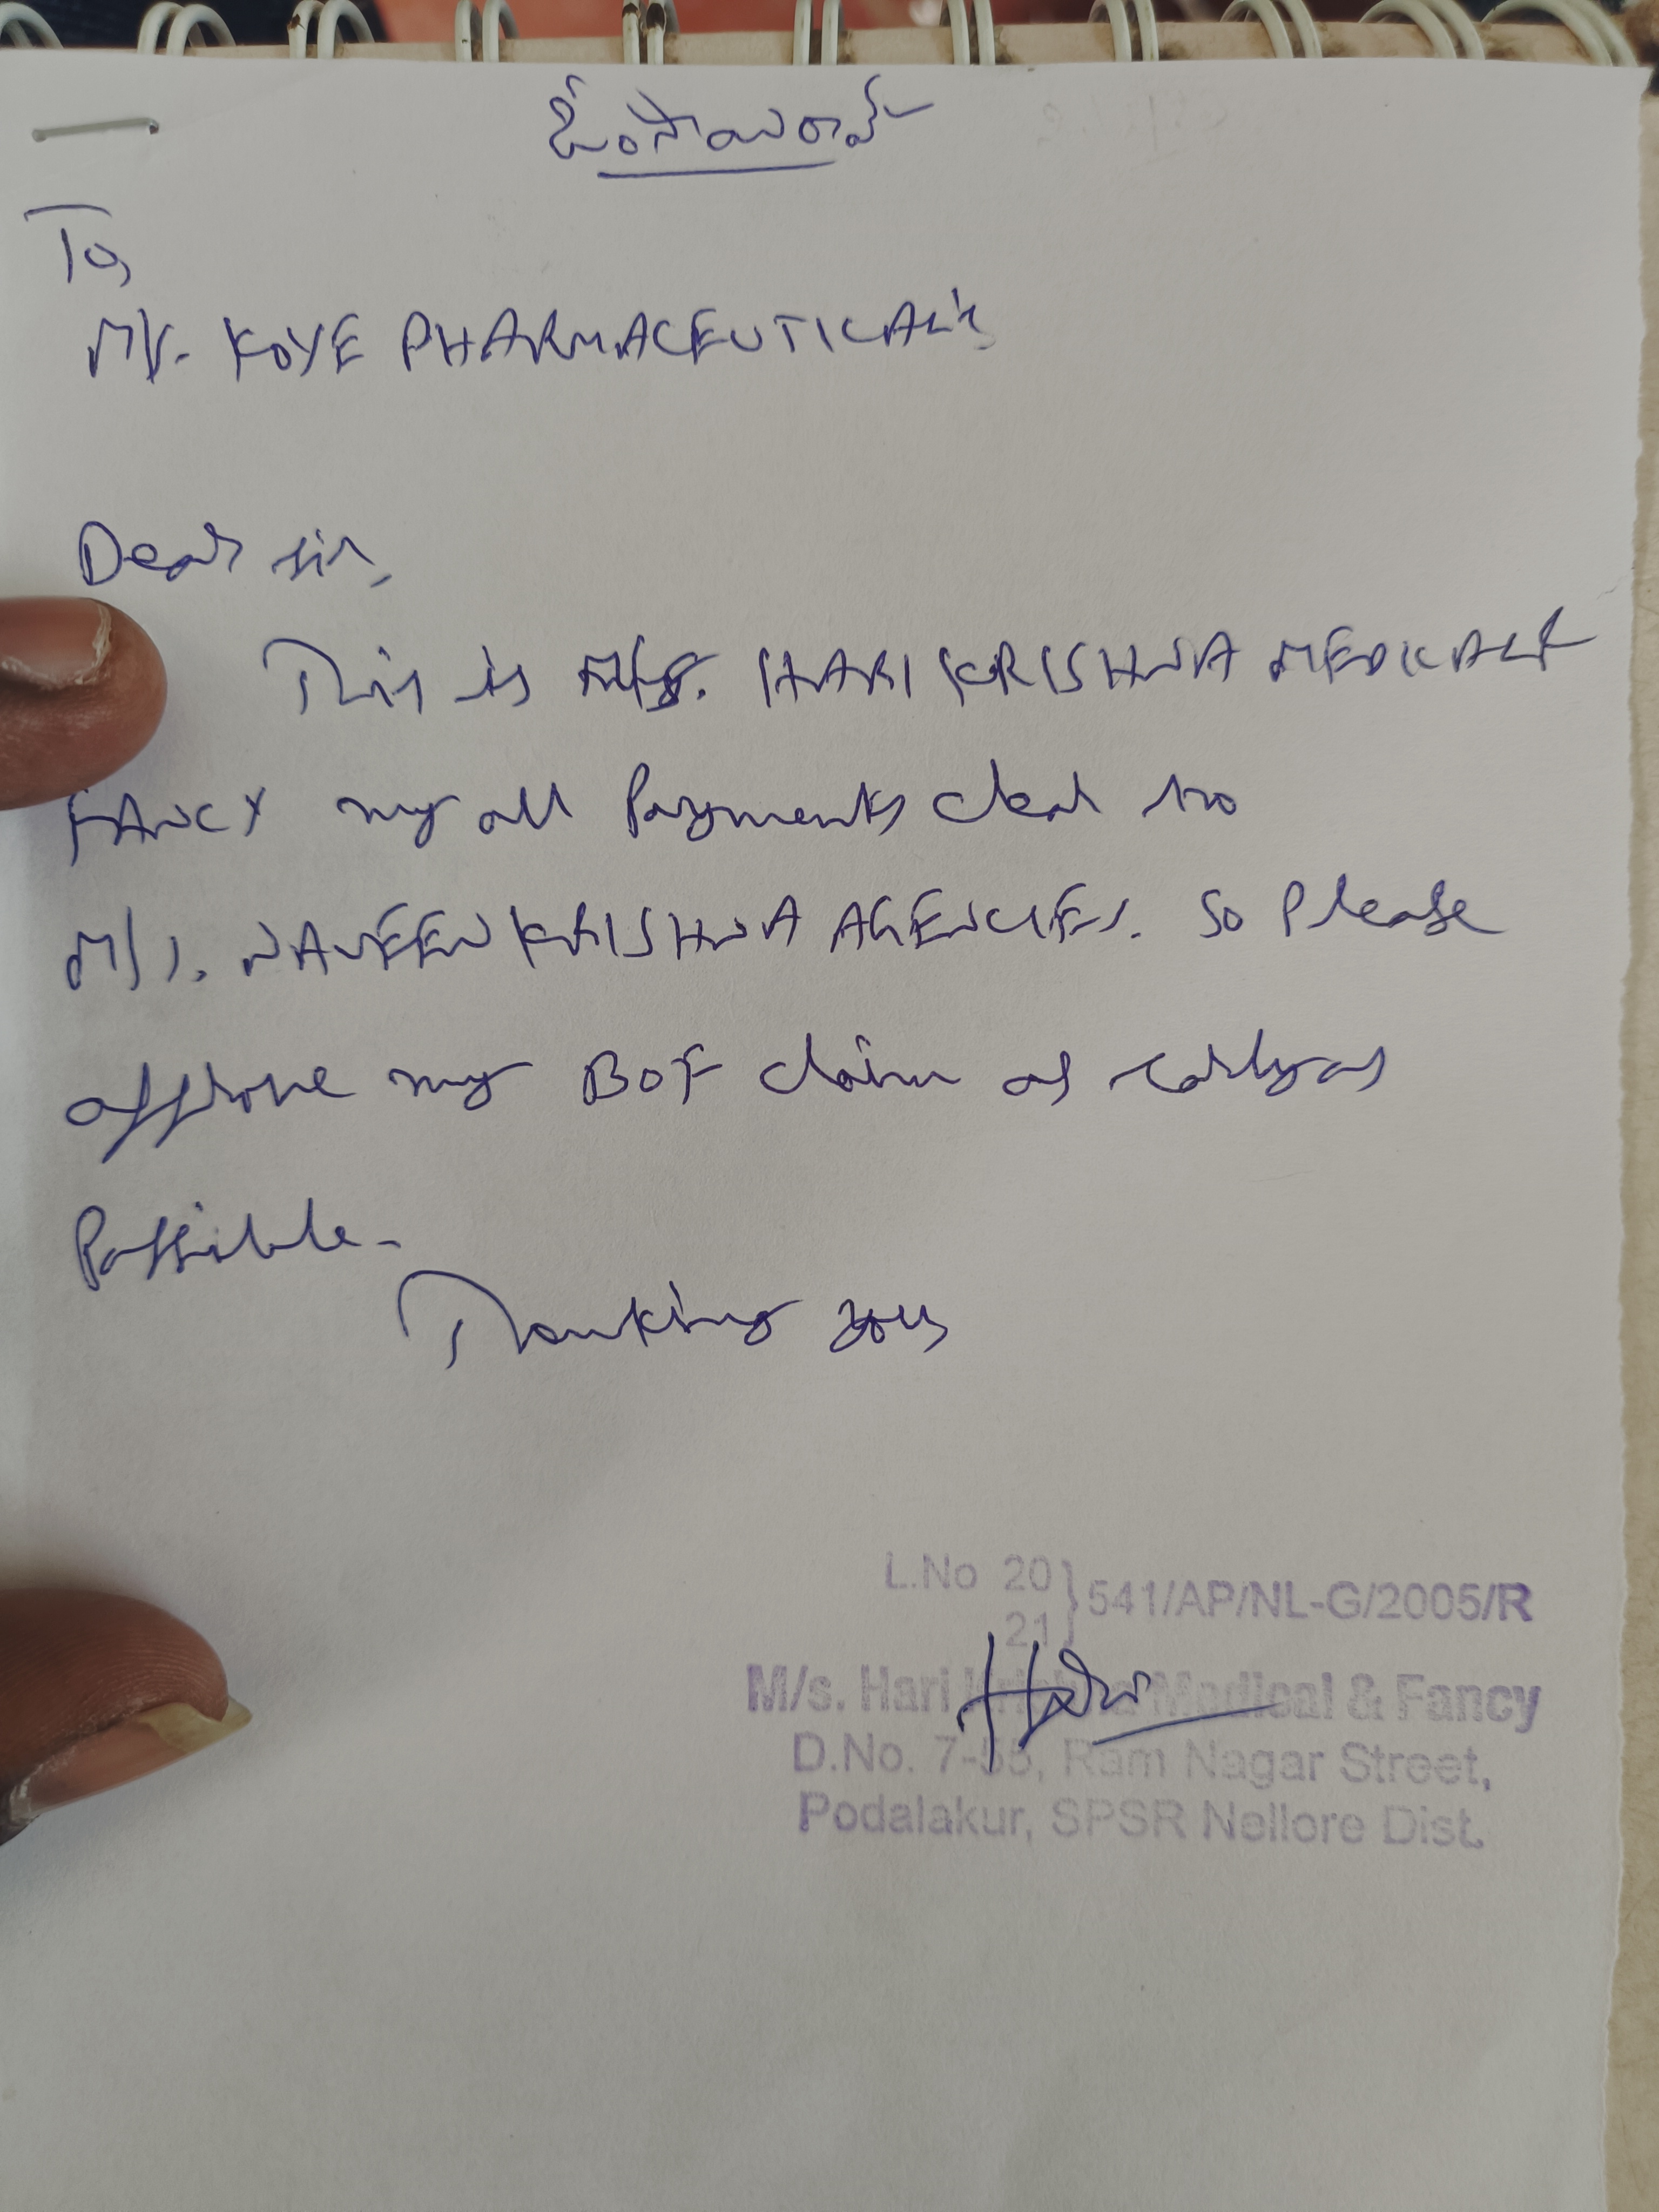 ఓం సాయిరామ్
To,
M/s. KOYE PHARMACEUTICAL's
Dear sir,
This is M/s. HARI KRISHNA MEDICAL &
FANCY my all Payments clear to
M/s. NAVEEN KRISHNA AGENCIES. So Please
approve my BOF claim as early as
Possible.
Thanking you
L.No 20 } 541/AP/NL-G/2005/R
21
M/s. Hari Krishna Medical & Fancy
D.No. 7-55, Ram Nagar Street,
Podalakur, SPSR Nellore Dist.